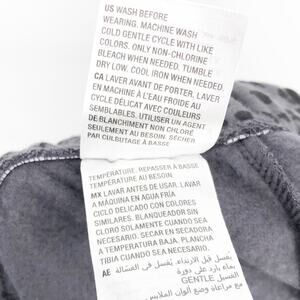 US WASH BEFORE
WEARING. MACHINE WASH
COLD GENTLE CYCLE WITH LIKE
COLORS. ONLY NON-CHLORINE
BLEACH WHEN NEEDED. TUMBLE
DRY LOW. COOL IRON WHEN NEEDED
CA LAVER AVANT DE PORTER, LAVER
EN MACHINE À L'EAU FROIDE AU
CYCLE DÉLICAT AVEC COULEURS
SEMBLABLES, UTILISER UN AGENT
DE BLANCHIMENT NON CHLORÉ
SEULEMENT AU BESOIN. SÉCHER
PAR CULBUTAGE À BASSE
TEMPÉRATURE. REPASSER À BASSE
TEMPÉRATURE AU BESOIN.
MX LAVAR ANTES DE USAR. LAVAR
A MÁQUINA EN AGUA FRÍA
CICLO DELICADO CON COLORES
SIMILARES. BLANQUEADOR SIN
CLORO SOLAMENTE CUANDO SEA
NECESARIO. SECAR EN SECADORA
A TEMPERATURA BAJA. PLANCHA
TIBIA CUANDO SEA NECESARIO.
AE يغسل قبل الارتداء. يغسل في الغسالة
بماء بارد على دورة
GENTLE الغسيل
مع مراعاة وضع ألوان الملابس